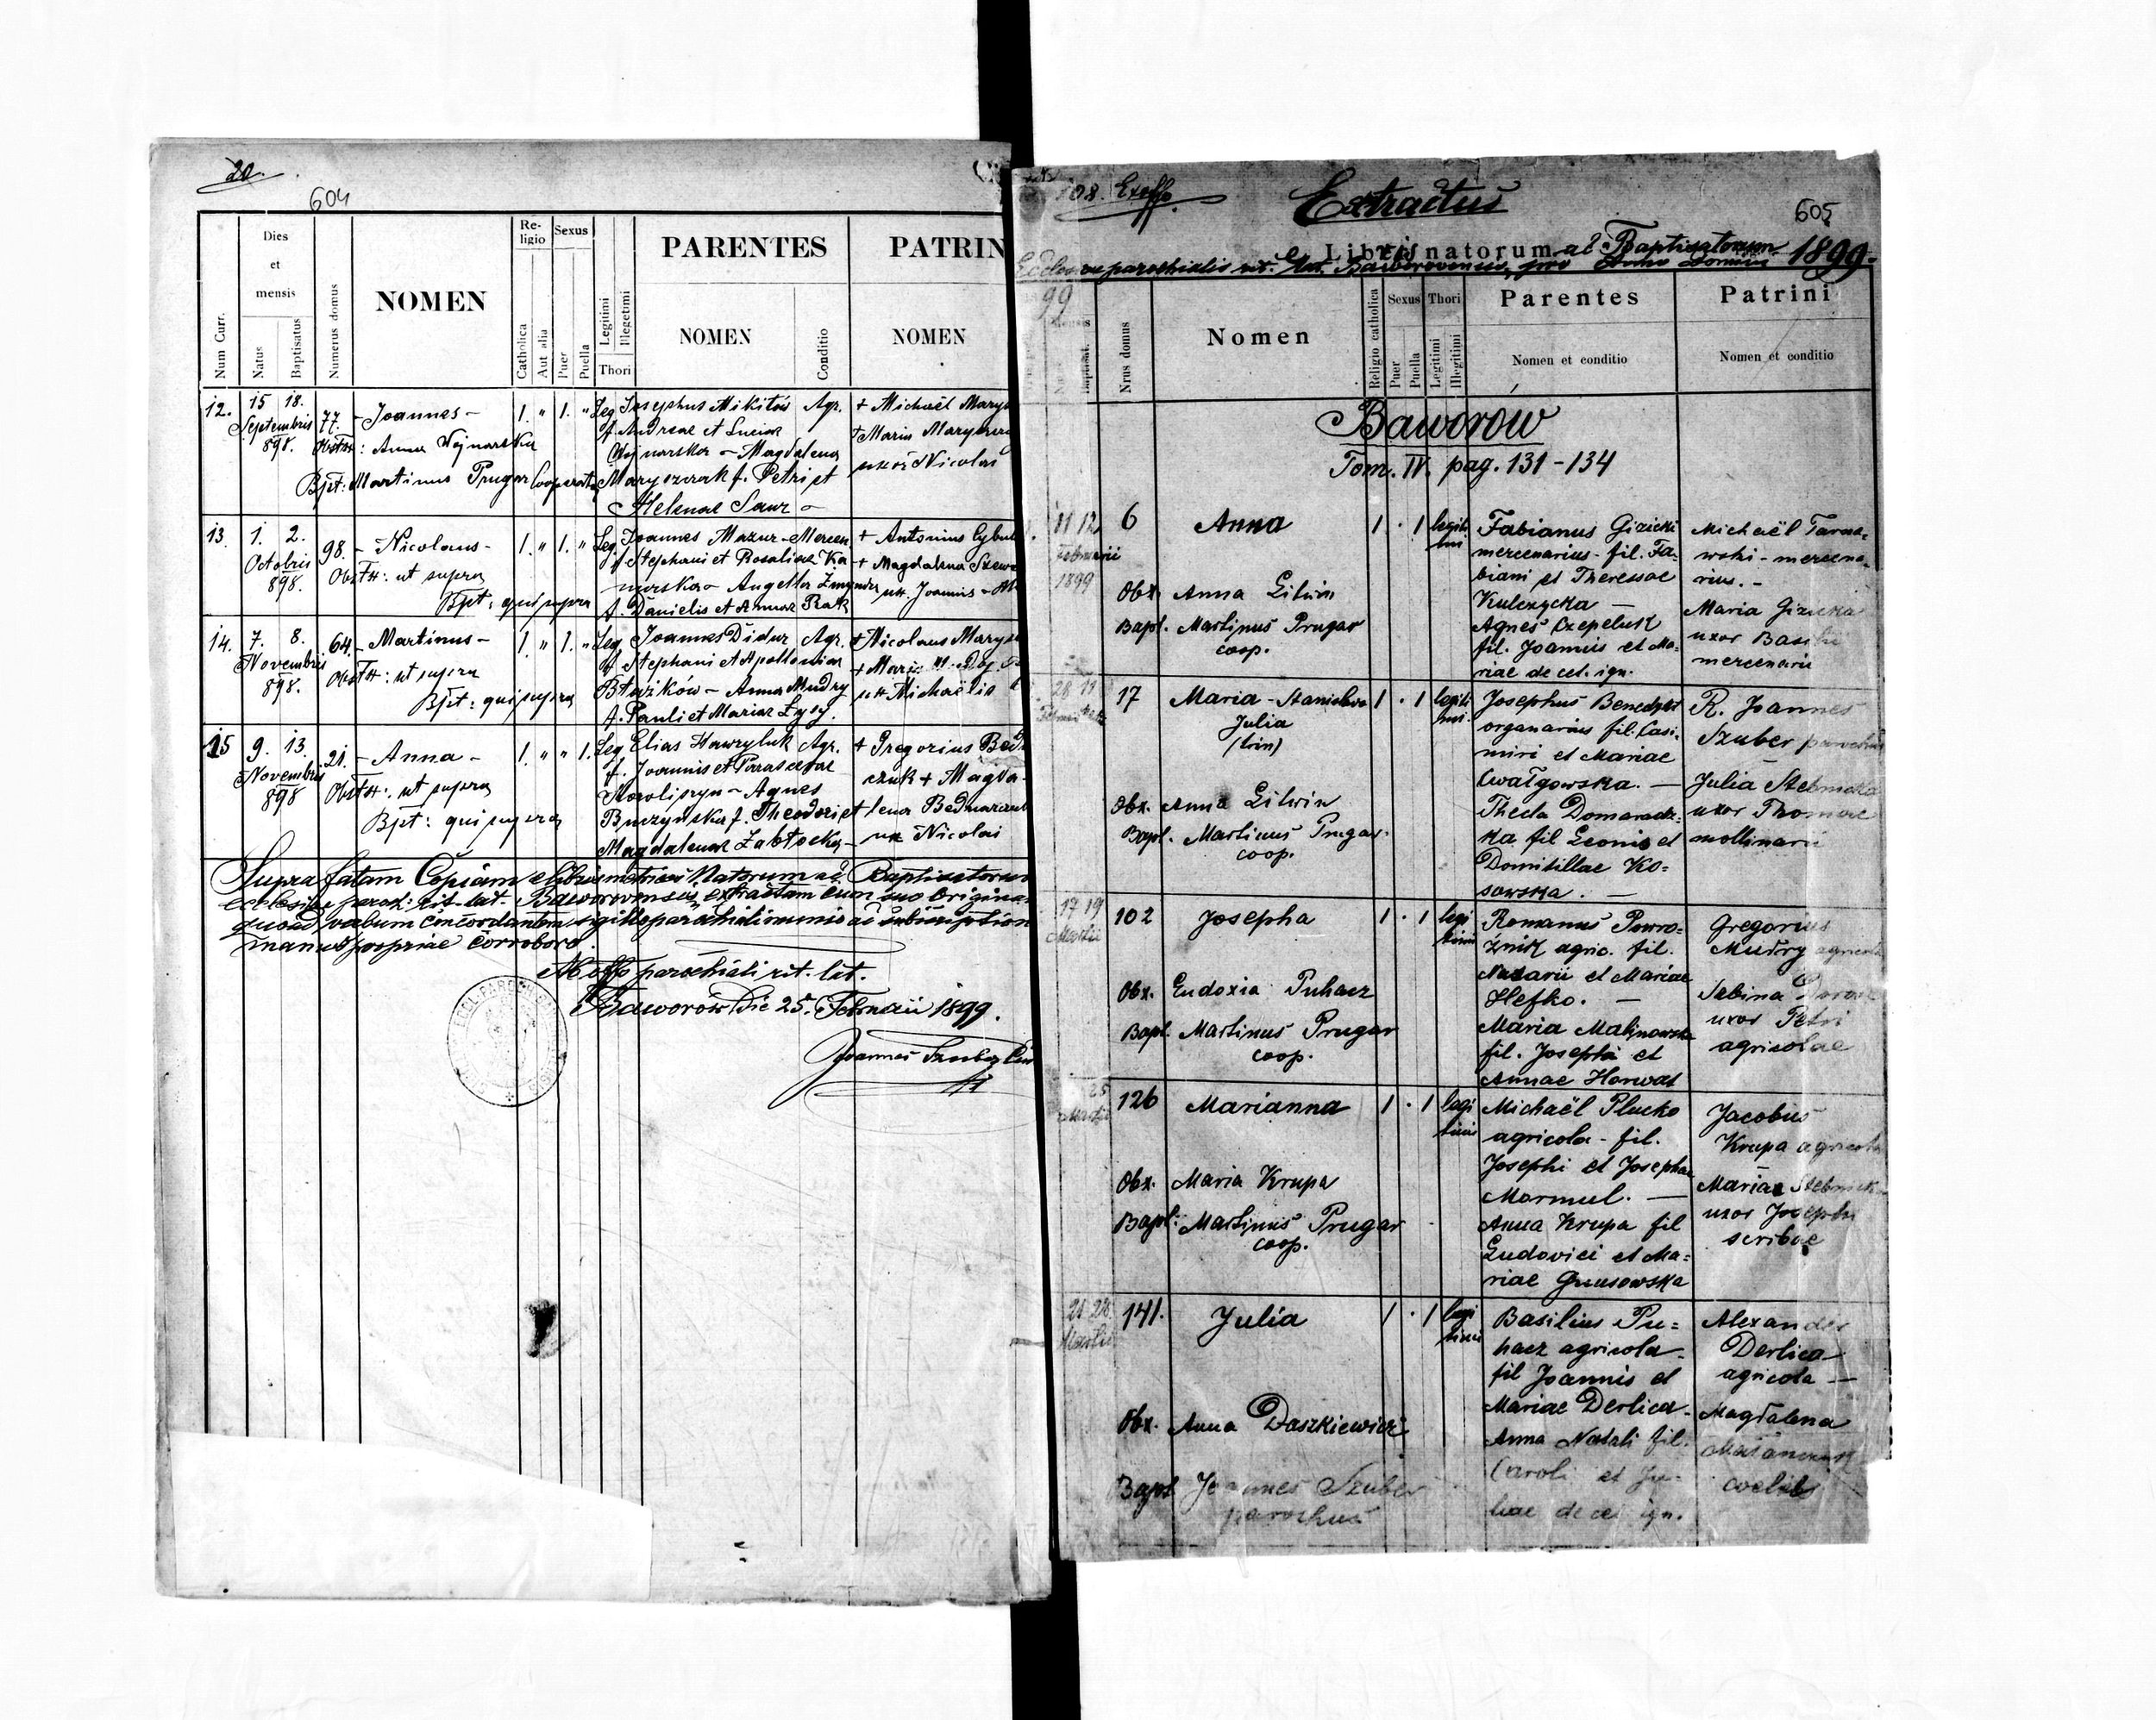 20.
604
Num Curr.
Dies
et
mensis
Natus
Baptisatus
Numerus domus
NOMEN
Re-
ligio
Catholica
Aut alia
Sexus
Puer
Puella
Legitimi
Illegetimi
Thori
PARENTES
NOMEN
Conditio
PATRIN
NOMEN
12. 15 18. 77. - Joannes - 1. " 1. " Leg Josephus Mikitów Agr. + Michaël Marysz
Septembris f. Andreae et Luciae + Maria
898. Obsttr: Anna Wojnarska Wojnarska - Magdalena uxor Nicolai
Bpt: Martinus Prugar Cooperator Maryszczak f. Petri et
Helenae Saur -
13. 1. 2. 98. - Nicolaus - 1. " 1. " Leg. Joannes Mazur - Mercen + Antonius
Octobris f Stephani et Rosaliae Ka + Magdalena
898. Obsttr: ut supra narska - Angella ux. Joannis
Bpt: qui supra f. Danielis et Annae Rak
14. 7. 8. 64. - Martinus - 1. " 1. " Leg Joannes Didur Agr. + Nicolaus Marys
Novembris f Stephani et Apolloniae + Maria
898. Obsttr: ut supra - Anna Mudry ux Michaëlis
Bpt: qui supra f. Pauli et Mariae Łysy.
15 9. 13. 21. - Anna - 1. " " 1. Leg Elias Hawryluk Agr. + Gregorius Bed
Novembris f. Joannis et Parascevae czuk + Magda-
898 Obsttr: ut supra - Agnes
Bpt: qui supra Buczynska f. Theodori et lena Bednarczuk
Magdalenae Zabłocka - ux Nicolai
Supra fatam Copiam e libris metrices Natorum ac Baptisatorum
ecclesiae paroch: rit. lat. Baworoviensis extractam cum suo Origina
quoad verbum concordantem sigillo parochiali munio ac subscription
manus propriae corroboro.
Ab offo parochiali rit. lat.
Baworów Die 25. Februarii 1899.
Joannes Szuber
108. Exoffo.
605
Extractus
e Libris natorum ac Baptisatorum 1899.
Ecclesiae parochialis rit. lat. Baworoviensis, pro Anno Domini
99
Baptisat.
Nrus domus
Nomen
Religio catholica
Sexus
Puer
Puella
Thori
Legitimi
Illegitimi
Parentes
Nomen et conditio
Patrini
Nomen et conditio
Baworow
Tom. IV. pag. 131-134
11 12 6 Anna 1 . 1 legiti Fabianus Gizicki Michaël Tarna-
Februarii mi mercenarius - fil. Fa- wski - mercena-
1899 biani et Theressae rius. -
Obx. Anna Litwin Kulczycka - Maria Gizicka
Bapt. Martinus Prugar Agnes Czepeluk uxor Basilii
coop. fil. Joannis et Ma- mercenarii
riae de cet. ign.
28 11 17 Maria - Stanislava 1 . 1 legiti Josephus Benedykt R. Joannes
Julia mi. organarius fil. Casi- Szuber parochus
(trin) miri et Mariae
Cwałgowska. - Julia Stebnicka
Obx. Anna Litwin Thecla Domaradz- uxor Thomae
Bapt. Martinus Prugar. ka fil Leonis et mollinarii
coop. Domitillae Ko-
sowska. -
17 19 102 Josepha 1 . 1 legi Romanus Powro- Gregorius
Martii timi źnik agric. fil. Mudry agricola
Nazarii et Mariae
Obx. Eudoxia Puhacz Hefko. - Sabina
Bapt Martinus Prugar Maria Malinowska uxor Petri
coop. fil. Josephi et agricolae
Annae Horwat
25 126 Marianna 1 . 1 legi Michaël Plucko Jacobus
Martii timi agricola - fil. Krupa agricola
Obx. Maria Krupa Josephi et Josephae Maria Stebnicka
Bapt: Martinus Prugar Marmul. - uxor Josephi
coop. Anna Krupa fil scribae
Ludovici et Ma-
riae Gnusowska
21 28 141. Julia 1 . 1 legi Basilius Pu- Alexander
Martii timi hacz agricola - Derlica
fil Joannis et agricola -
Obx. Anna Daszkiewicz Mariae Derlica - Magdalena
Anna Natali fil.
Bapt Joannes Szuber Caroli et Ju- coelebs
parochus liae de cet ign.